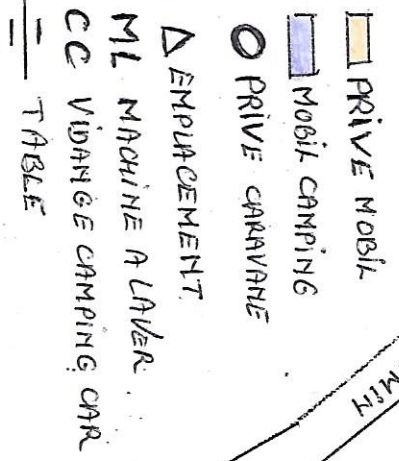 PRIVE MOBIL
MOBIL CAMPING
PRIVE CARAVANE
EMPLACEMENT.
ML MACHINE A LAVER.
CC VIDANGE CAMPING CAR
TABLE